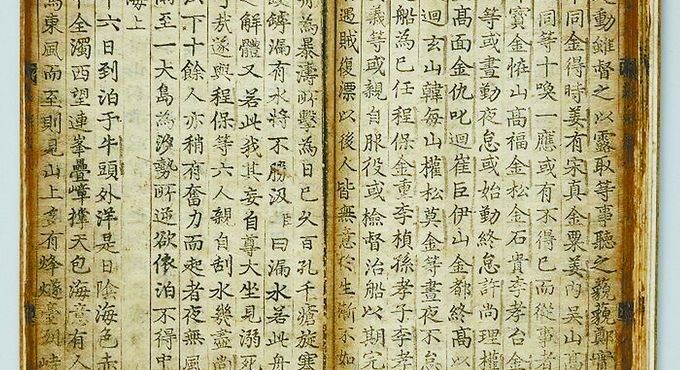 動雖督之以露取等事聽之藐藐鄭實
同金得時姜有宋真金粟姜內吳山高
同等十喚一應或有不得已而從事者
寶金怪山高福金松金石貴李孝台金
等或晝勤夜怠或始勤終怠許尚理權
高面金仇叱迴崔巨伊山金都終高以
迴玄山韓每山權松莫金等晝夜不怠
船為已任程保金重李楨孫孝子李孝
義等或親自服役或檢督治船以期完
遇賊復漂以後人皆無意於生漸不如
為暴濤所擊為日已久百孔千瘡旋塞
鏬漏有水將不勝汲曰漏水若此舟
之解體又若此我其妄自尊大坐見溺死
哉遂與程保等六人親自刮水幾盡尚
下十餘人亦稍有奮力而起者夜無風
雨至一大島為汐勢所逆欲依泊不得中
海上
十六日到泊于牛頭外洋是日陰海色赤
全濁西望連峯疊嶂撑天包海意有人
東風而至則見山上多有烽燧臺列峙